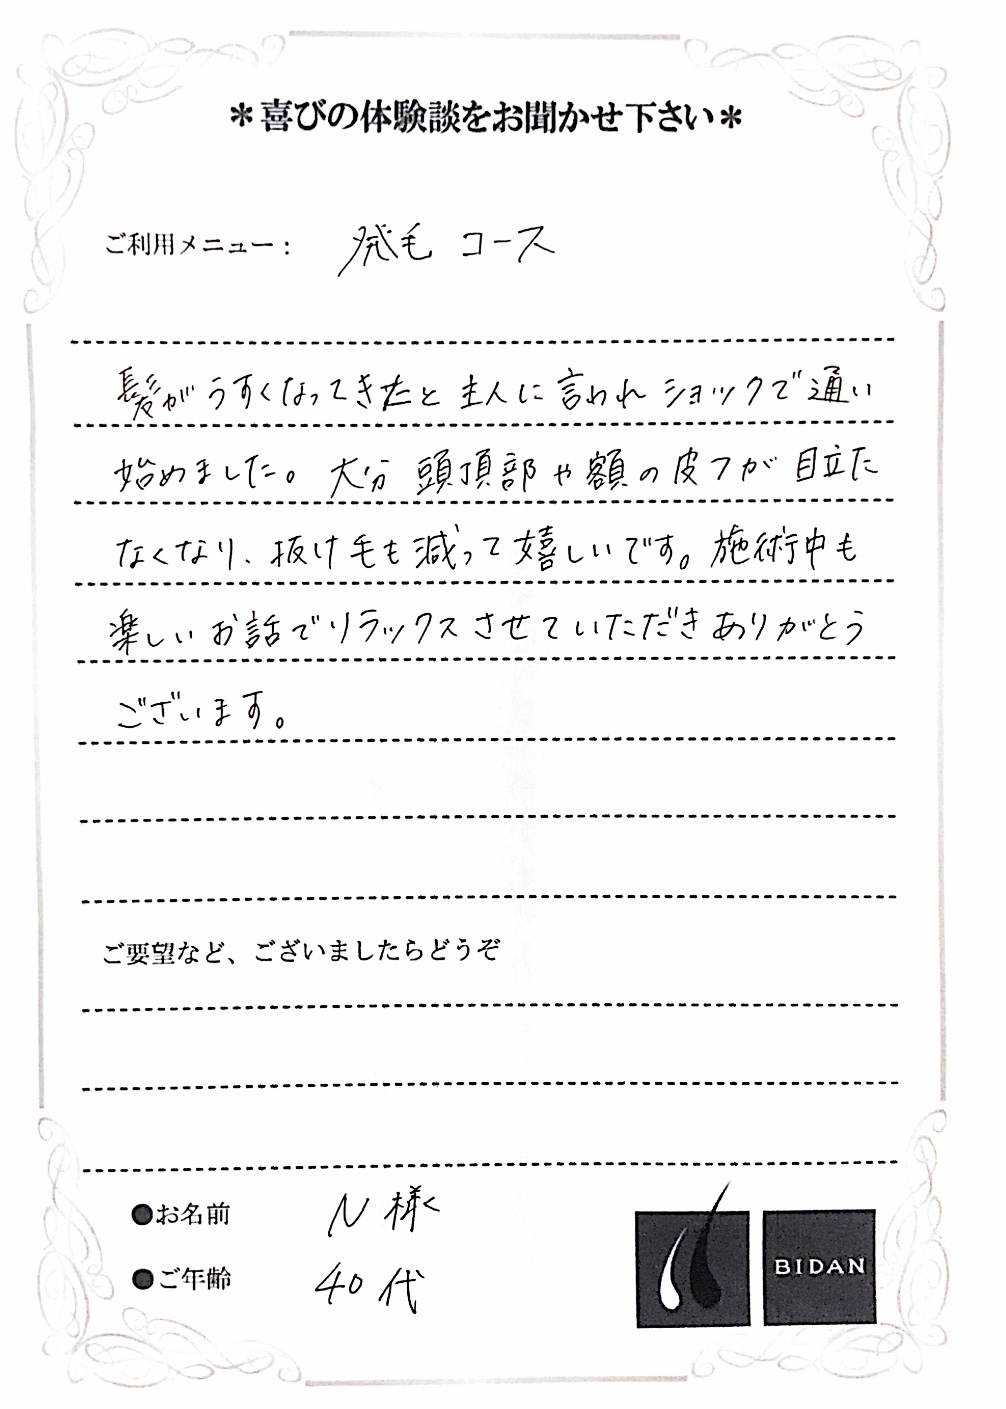 ＊喜びの体験談をお聞かせ下さい＊
ご利用メニュー： 発毛 コース
髪がうすくなってきたと 主人に言われ ショックで通い
始めました。大分 頭頂部や額の皮フが目立た
なくなり、抜け毛も減って嬉しいです。施術中も
楽しいお話でリラックスさせていただきありがとう
ございます。
ご要望など、ございましたらどうぞ
●お名前 N 様
●ご年齢 40代
BIDAN